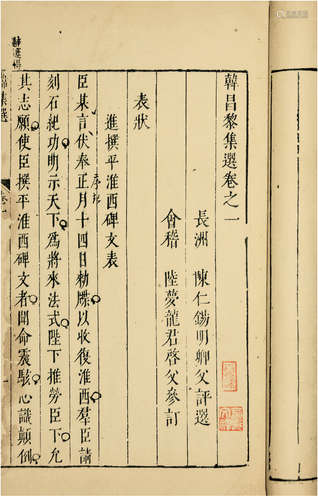 韓昌黎集選卷之一
長洲 陳仁錫明卿父評選
會稽 陸夢龍君啓父參訂
表狀
進撰平淮西碑文表
臣某言伏奉正月十四日勑牒以收復淮西羣臣請
刻石紀功明示天下爲將來法式陛下推勞臣下允
其志願使臣撰平淮西碑文者聞命震駭心識顛倒